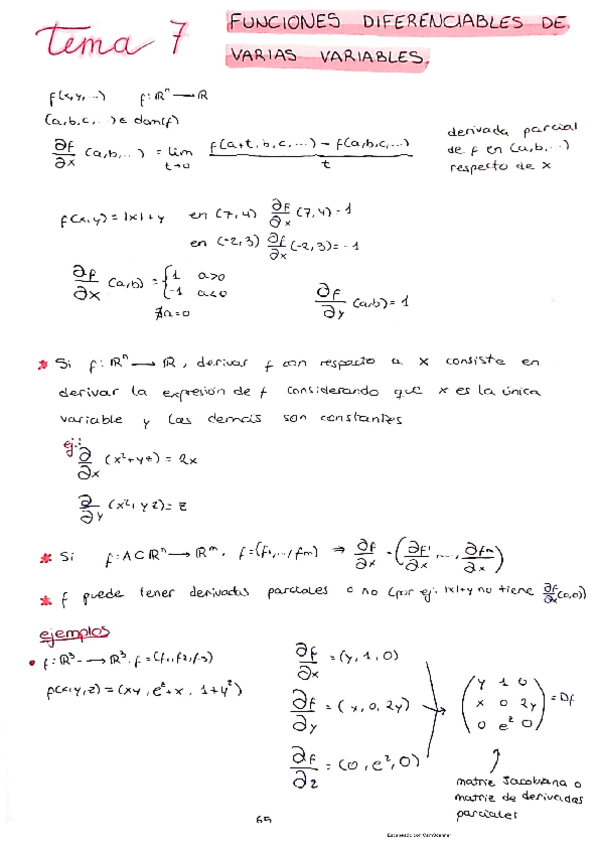 tema 7
FUNCIONES DIFERENCIABLES DE
VARIAS VARIABLES.
f(x,y,...) f: ℝⁿ → ℝ
(a,b,c,...) ∈ dom(f)
∂f/∂x (a,b,...) = lim t→0 (f(a+t,b,c,...) - f(a,b,c,...))/t
derivada parcial
de f en (a,b,...)
respecto de x
f(x,y) = |x|+y en (7,4) ∂f/∂x (7,4) = 1
en (-2,3) ∂f/∂x (-2,3) = -1
∂f/∂x (a,b) = { 1 a>0
-1 a<0
∄ a=0
∂f/∂y (a,b) = 1
* Si f: ℝⁿ → ℝ, derivar f con respecto a x consiste en
derivar la expresión de f considerando que x es la única
variable y las demás son constantes
ej.:
∂/∂x (x²+yz) = 2x
∂/∂y (x²+yz) = z
* Si f: A⊂ℝⁿ → ℝᵐ, f=(f1,...,fm) ⇒ ∂f/∂x = (∂f1/∂x, ..., ∂fm/∂x)
* f puede tener derivadas parciales o no (por ej. |x|+y no tiene ∂f/∂x (0,0))
ejemplos
• f: ℝ³ → ℝ³. f=(f1,f2,f3)
f(x,y,z) = (xy, eᶻ+x, 1+y²)
∂f/∂x = (y,1,0)
∂f/∂y = (x,0,2y)
∂f/∂z = (0,eᶻ,0)
(y 1 0
x 0 2y
0 eᶻ 0) = Df
matriz Jacobiana o
matriz de derivadas
parciales
65
Escaneado con CamScanner